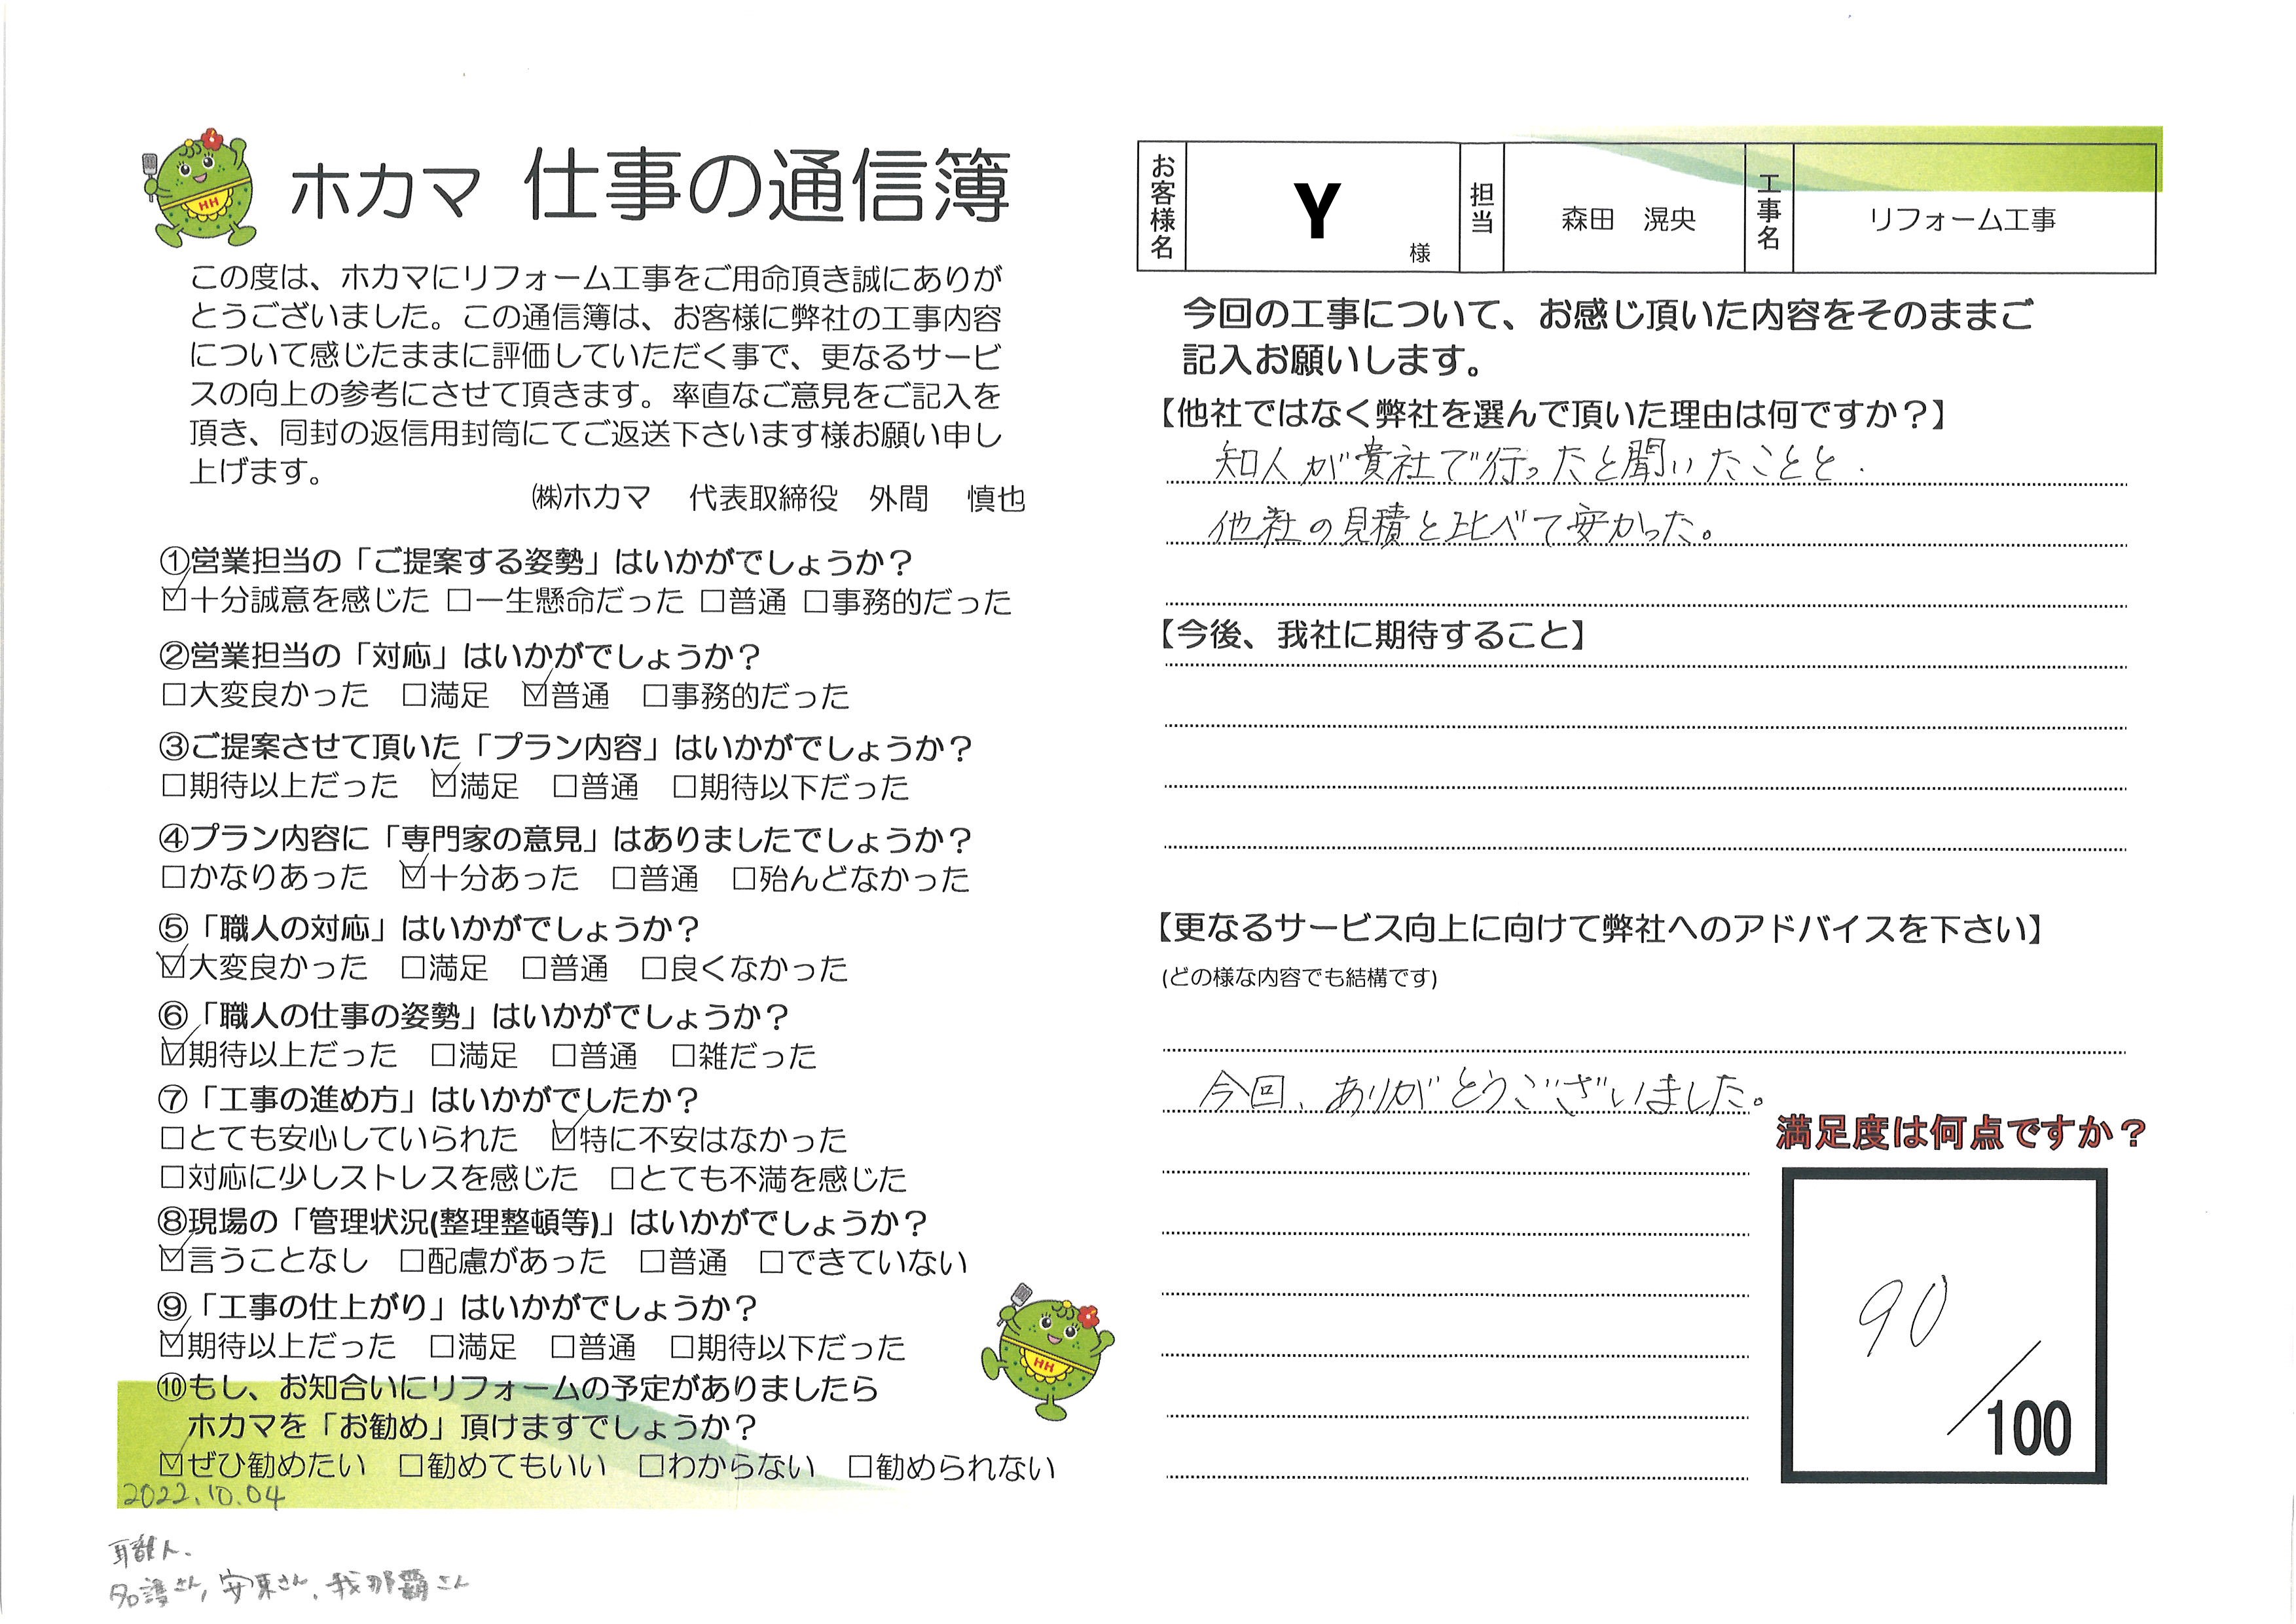 ホカマ 仕事の通信簿
この度は、ホカマにリフォーム工事をご用命頂き誠にありが
とうございました。この通信簿は、お客様に弊社の工事内容
について感じたままに評価していただく事で、更なるサービ
スの向上の参考にさせて頂きます。率直なご意見をご記入を
頂き、同封の返信用封筒にてご返送下さいます様お願い申し
上げます。
㈱ホカマ 代表取締役 外間 慎也
①営業担当の「ご提案する姿勢」はいかがでしょうか？
☑十分誠意を感じた □一生懸命だった □普通 □事務的だった
②営業担当の「対応」はいかがでしょうか？
□大変良かった □満足 ☑普通 □事務的だった
③ご提案させて頂いた「プラン内容」はいかがでしょうか？
□期待以上だった ☑満足 □普通 □期待以下だった
④プラン内容に「専門家の意見」はありましたでしょうか？
□かなりあった ☑十分あった □普通 □殆んどなかった
⑤「職人の対応」はいかがでしょうか？
☑大変良かった □満足 □普通 □良くなかった
⑥「職人の仕事の姿勢」はいかがでしょうか？
☑期待以上だった □満足 □普通 □雑だった
⑦「工事の進め方」はいかがでしたか？
□とても安心していられた ☑特に不安はなかった
□対応に少しストレスを感じた □とても不満を感じた
⑧現場の「管理状況(整理整頓等)」はいかがでしょうか？
☑言うことなし □配慮があった □普通 □できていない
⑨「工事の仕上がり」はいかがでしょうか？
☑期待以上だった □満足 □普通 □期待以下だった
⑩もし、お知合いにリフォームの予定がありましたら
ホカマを「お勧め」頂けますでしょうか？
☑ぜひ勧めたい □勧めてもいい □わからない □勧められない
2022.10.04
職人、
名護さん, 安東さん、我那覇さん
お客様名 Y 様 担当 森田 滉央 工事名 リフォーム工事
今回の工事について、お感じ頂いた内容をそのままご
記入お願いします。
【他社ではなく弊社を選んで頂いた理由は何ですか？】
知人が貴社で行ったと聞いたことと、
他社の見積と比べて安かった。
【今後、我社に期待すること】
【更なるサービス向上に向けて弊社へのアドバイスを下さい】
(どの様な内容でも結構です)
今回、ありがとうございました。
満足度は何点ですか？
90
/100
HH
HH